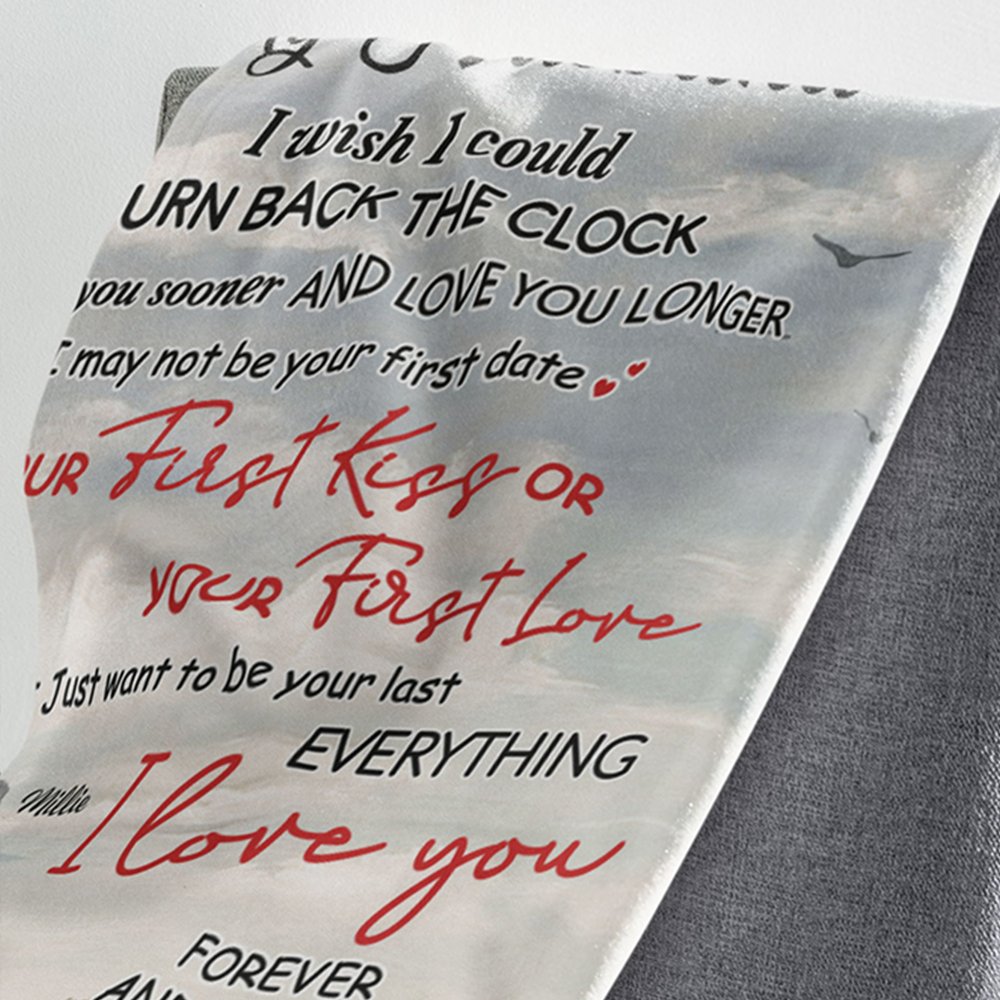 I wish I could
URN BACK THE CLOCK
you sooner AND LOVE YOU LONGER
I may not be your first date
UR First Kiss OR
YOUR First Love
Just want to be your last
EVERYTHING
Millie
I love you
FOREVER